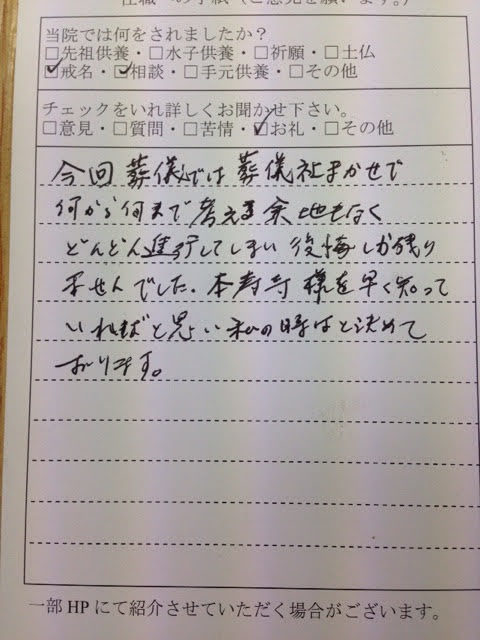 住職への手紙（ご意見を願います。）
当院では何をされましたか？
□先祖供養・□水子供養・□祈願・□土仏
☑戒名・☑相談・□手元供養・□その他
チェックをいれ詳しくお聞かせ下さい。
□意見・□質問・□苦情・☑お礼・□その他
今回葬儀では葬儀社まかせで
何から何まで考える余地もなく
どんどん進行してしまい後悔しか残り
ませんでした。本寿寺様を早く知って
いればと思い私の時はと決めて
おります。
一部HPにて紹介させていただく場合がございます。